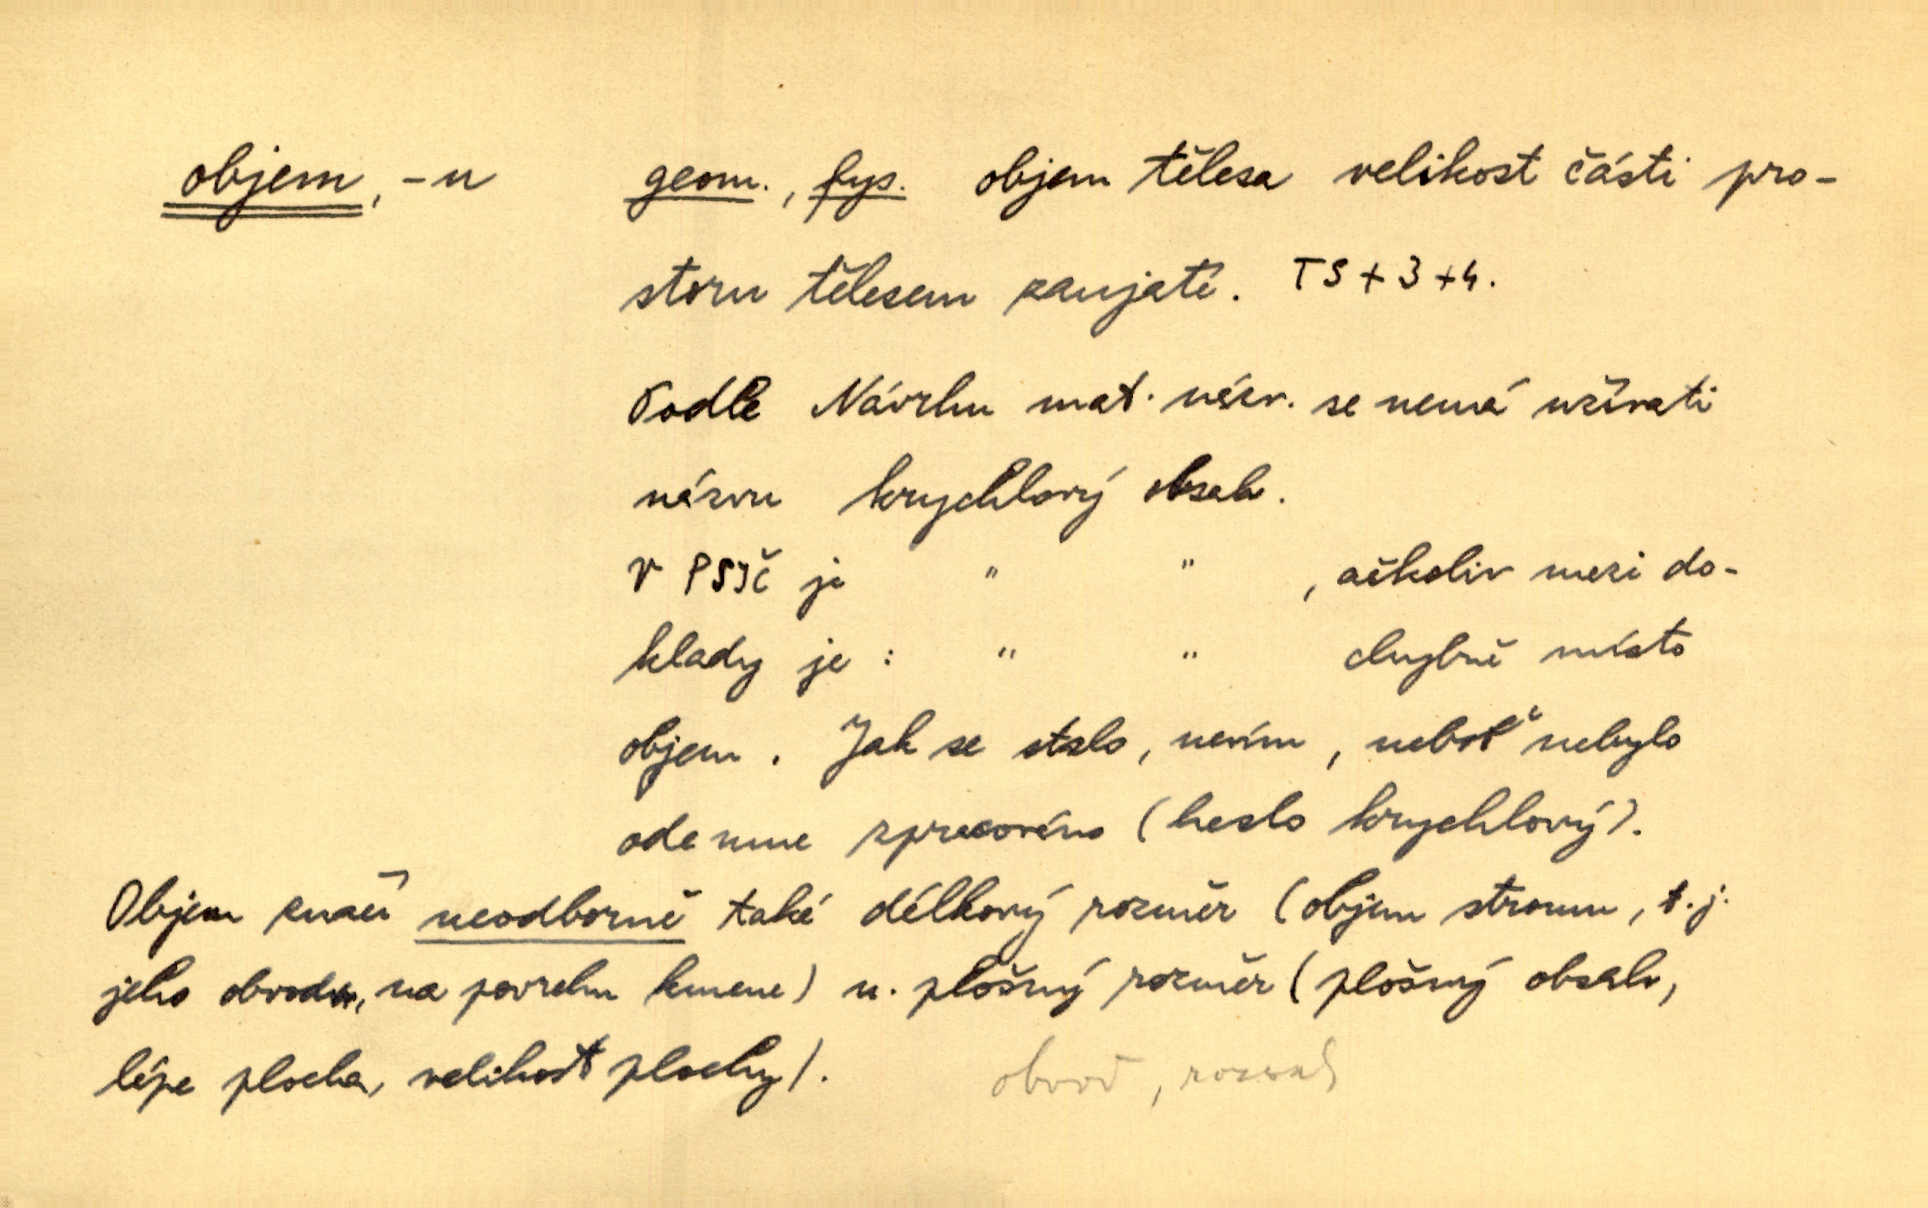 objem, -u geom., fys. objem tělesa velikost části pro-
storu tělesem zaujaté. TS + 3 + 4.
Podle Návrhu mat. názv. se nemá užívati
názvu krychlový obsah.
V PSJČ je " " , ačkoliv mezi do-
klady je : " " chybně místo
objem. Jak se stalo, nevím, neboť nebylo
ode mne zpracováno (heslo krychlový).
Objem značí neodborně také délkový rozměr (objem stromu, t. j.
jeho obvod, na povrchu kmene) n. plošný rozměr (plošný obsah,
lépe plocha, velikost plochy).
obvod, rozsah